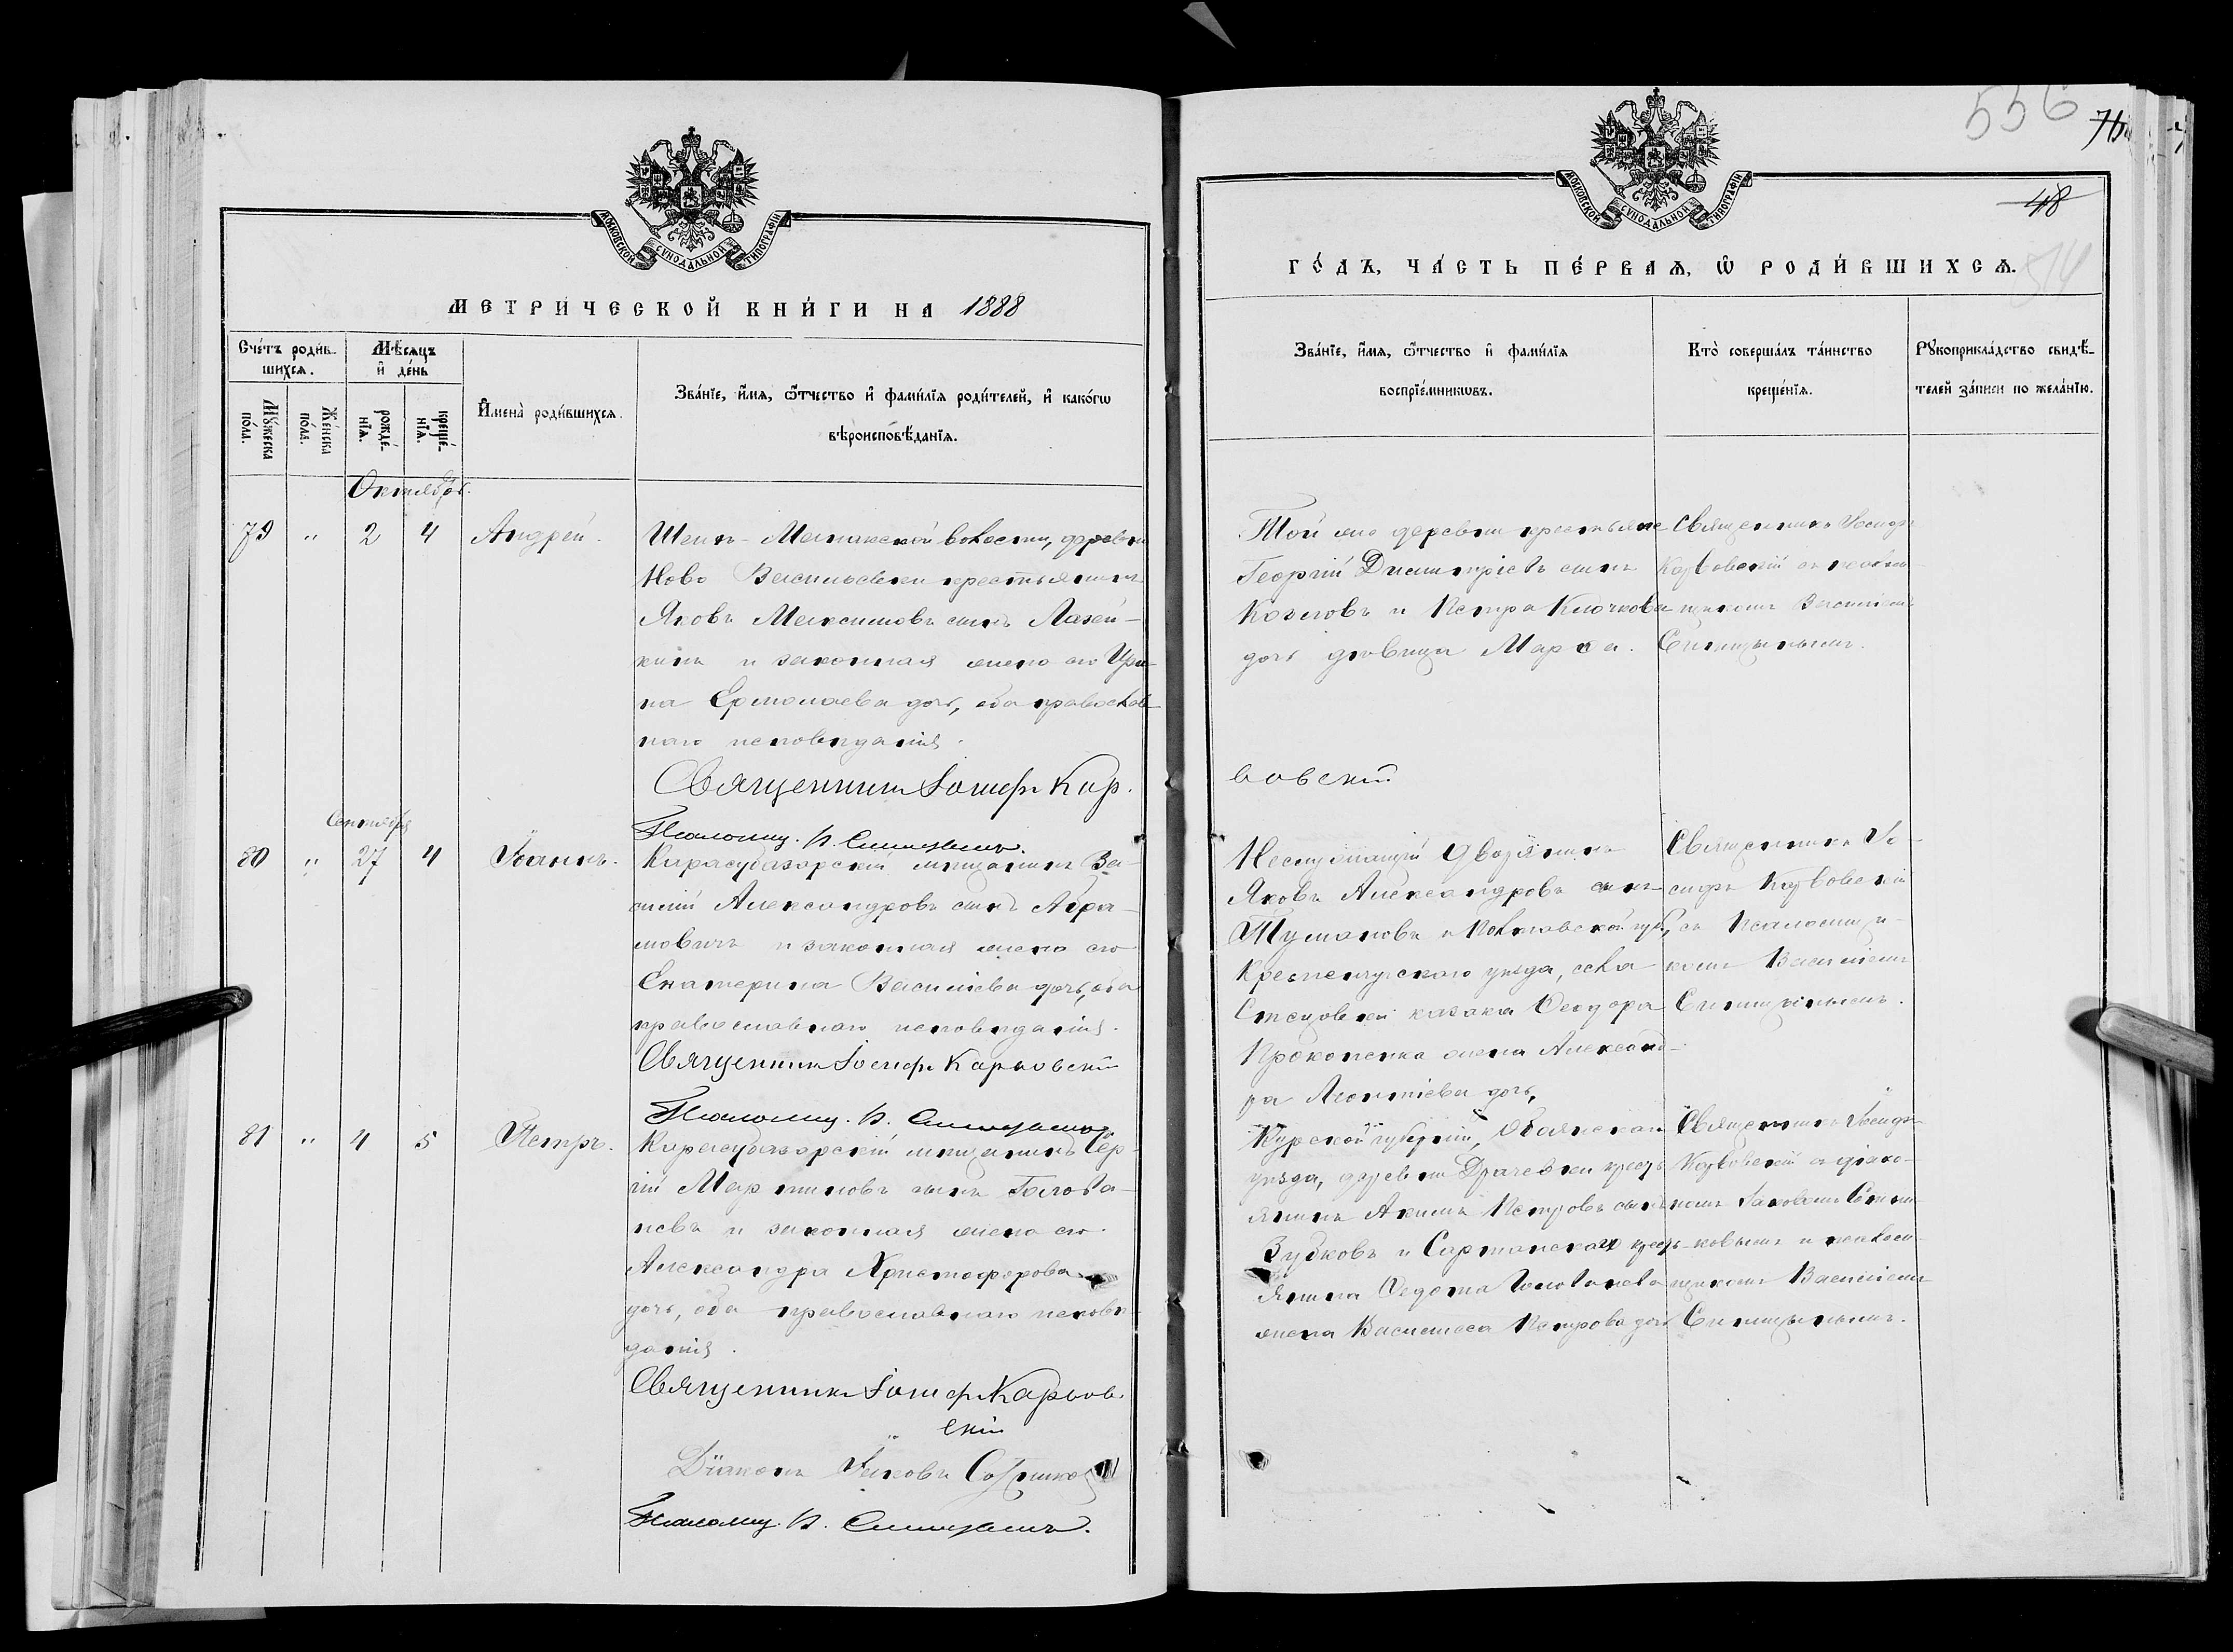 МОСКОВСКОЙ СѴНОДАЛЬНОЙ ТИПОГРАФІИ
МЕТРИЧЕСКОЙ КНИГИ НА 1888
Счетъ родив-
шихся.
Мѣсяцъ
и день
Мужеска
пола.
Женска
пола.
рожде-
нія.
креще-
нія.
Имена родившихся.
Званіе, имя, отчество и фамилія родителей, и какого
вѣроисповѣданія.
Октябрь.
79 " 2 4 Андрей.
Шеихъ-Монакской волости, деревни
Ново Васильевки крестьянинъ
Яковъ Максимовъ сынъ Лазей-
кинъ и законная жена его Ири-
на Ермолаева дочь, оба православ-
наго исповѣданія.
Священникъ Іосифъ Кар.
Псаломщ. В. Синицынъ.
Сентября
80 " 27 4 Іоаннъ.
Карасубазарскій мѣщанинъ Ва-
силій Александровъ сынъ Абра-
мовичъ и законная жена его
Екатерина Василіева дочь, оба
православнаго исповѣданія.
Священникъ Іосифъ Карьовскій
Псаломщ. В. Синицынъ.
81 " 4 5 Петръ.
Карасубазарскій мѣщанинъ Сер-
гій Мартиновъ сынъ Голова-
невъ и законная жена его
Александра Христофорова
дочь, оба православнаго исповѣ-
данія.
Священникъ Іосифъ Карьов.
скій
Діаконъ Іаковъ Сотников
Псаломщ. В. Синицынъ.
556
48
514
МОСКОВСКОЙ СѴНОДАЛЬНОЙ ТИПОГРАФІИ
ГОДЪ, ЧАСТЬ ПЕРВАЯ, Ѡ РОДИВШИХСЯ.
Званіе, имя, отчество и фамилія
воспріемниковъ.
Кто совершалъ таинство
крещенія.
Рукоприкладство свидѣ-
телей записи по желанію.
Той же деревни крестьяне
Георгій Димитріевъ сынъ
Козловъ и Петра Клочкова
дочь дѣвица Марѳа.
Священникъ Іосифъ
Карьовскій съ псалом-
щикомъ Василіемъ
Синицынымъ.
ьовскій
Неслужащій Дворянинъ
Яковъ Александровъ сынъ
Тумановъ и Полтавской губ.,
Кременчугскаго уѣзда, села
казака Ѳеодора
Прокопенка жена Александ-
ра Леонтіева дочь,
Священникъ Іо-
сифъ Карьовскій
съ Псаломщи-
комъ Василіемъ
Синицынымъ.
Курской губерніи, Обаянскаго
уѣзда, деревни Драчевки кресть-
янинъ Акимъ Петровъ сынъ
Зубковъ и Сартанская кресть-
янина Ѳедота Голованева
жена Василиса Петрова дочь
Священникъ Іосифъ
Карьовскій съ діако-
номъ Іаковомъ Сотни-
ковымъ и псалом-
щикомъ Василіемъ
Синицынымъ.